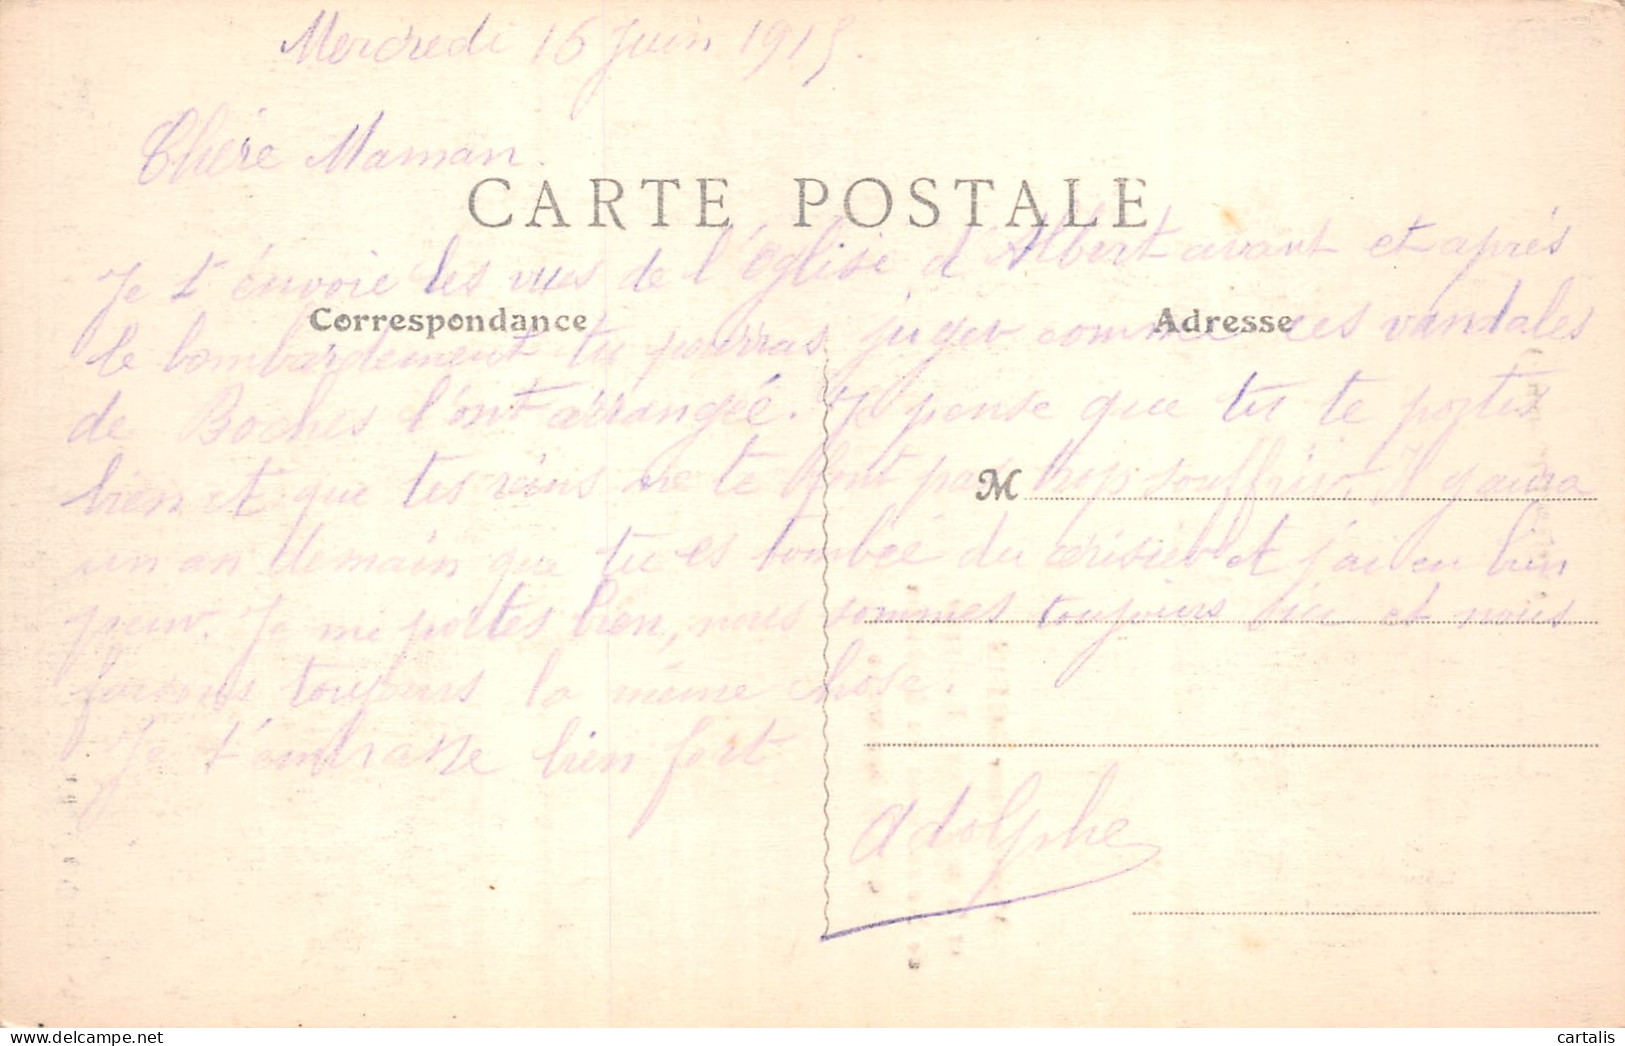 Mercredi 16 Juin 1915.
Chère Maman.
CARTE POSTALE
Je t'envoie les vues de l'église d'Albert avant et après
Correspondance
Adresse
le bombardement tu pourras juger comme ces vandales
de Boches l'ont arrangée. Je pense que tu te portes
bien et que tes reins ne te font pas trop souffrir. Il y aura
M
un an demain que tu es tombée du cerisier et j'ai eu bien
peur. Je me portes bien, nous sommes toujours ici et nous
faisons toujours la même chose.
Je t'embrasse bien fort
Adolphe
cartalis